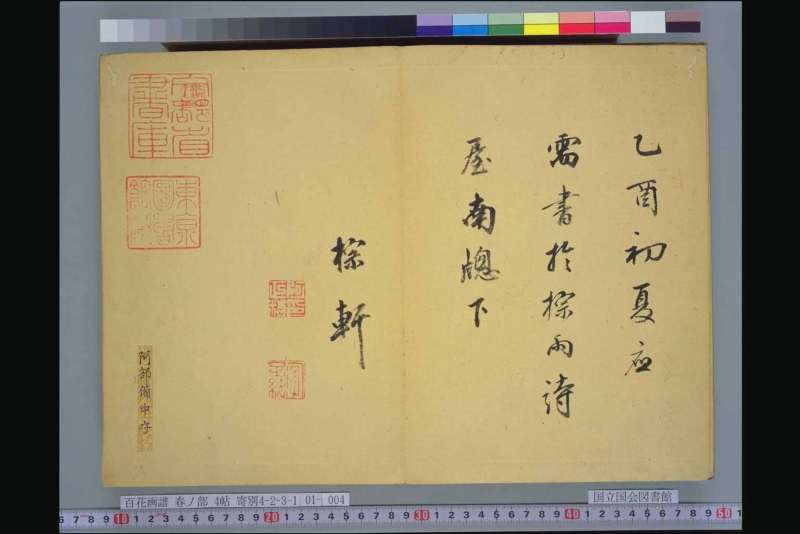 乙酉初夏应
需書於棕雨詩
屋南牕下
棕軒
阿部備中守
書庫
東京
百花画譜 春ノ部 4帖 寄別4-2-3-1 01- 004
国立国会図書館
6 7 8 9 10 1 2 3 4 5 6 7 8 9 20 1 2 3 4 5 6 7 8 9 30 1 2 3 4 5 6 7 8 9 40 1 2 3 4 5 6 7 8 9 50 1